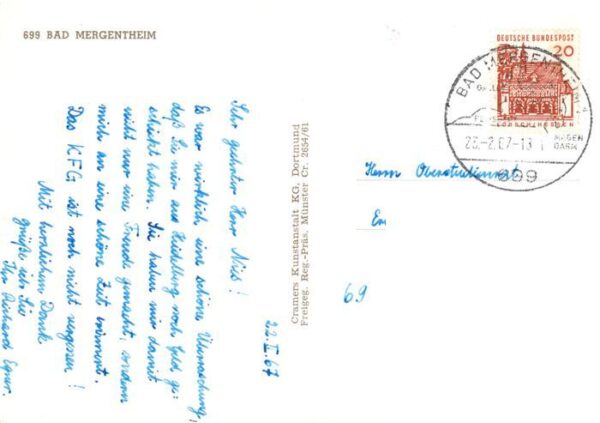 699 BAD MERGENTHEIM
Sehr geehrter Herr
Es war wirklich eine schöne Überraschung,
daß Sie mir aus Heidelbg noch Geld ge-
schickt haben. Sie haben mir damit
nicht nur eine Freude gemacht, sondern
mich an eine schöne Zeit erinnert.
Das KFG ist noch nicht vergessen!
Mit herzlichem Dank
grüße ich Sie
Ihr Richard
22.II.67
Cramers Kunstanstalt KG. Dortmund
Freigeg. Reg.-Präs. Münster Cr. 2654/61
DEUTSCHE BUNDESPOST
20
BAD MERGENTHEIM
699
Herrn Oberstudienrat
69